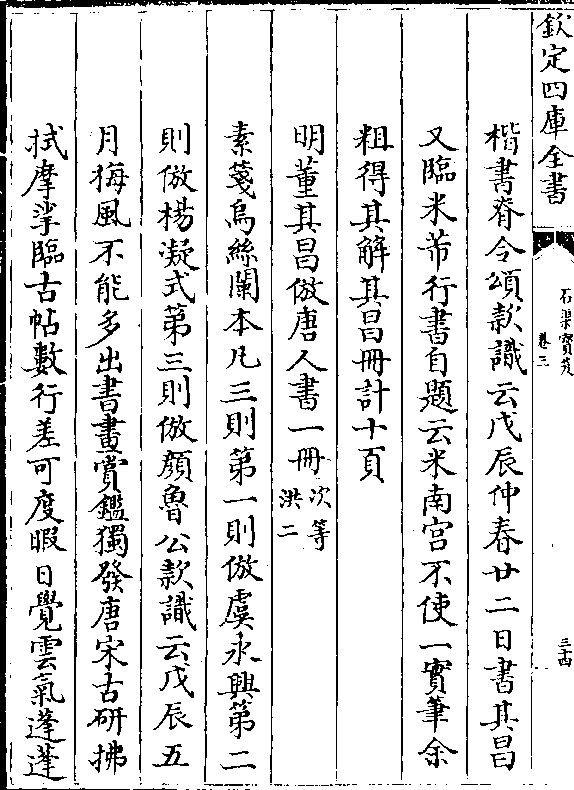 欽定四庫全書
石渠寳笈
卷三
三十四
楷書脊令頌款識云戊辰仲春廿二日書其昌
又臨米芾行書自題云米南宫不使一實筆余
粗得其解其昌冊計十頁
明董其昌倣唐人書一冊次等
洪二
素箋烏絲闌本凡三則第一則倣虞永興第二
則倣楊凝式第三則倣顔魯公款識云戊辰五
月梅風不能多出書畫賞鑑獨發唐宋古研拂
拭摩挲臨古帖數行差可度暇日覺雲氣蓬蓬